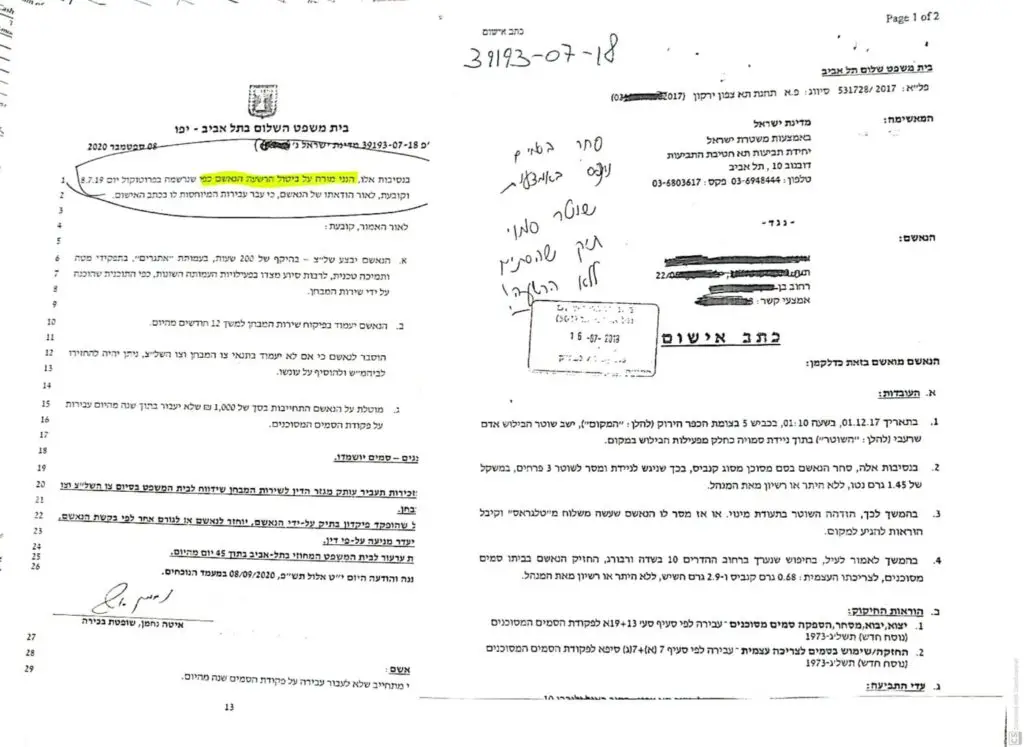 Page 1 of 2
כתב אישום
39193-07-18
בית משפט שלום תל אביב
פל״א: 531728/2017 סיווג: פ.א תחנת תא צפון ירקון
המאשימה:
מדינת ישראל
באמצעות משטרת ישראל
יחידת תביעות תא חטיבת התביעות
דובנוב 10, תל אביב
טלפון: 03-6948444 פקס: 03-6803617
- נגד -
הנאשם:
רחוב בן
אמצעי קשר:
סחר בסמים
באמצעות
שוטר סמוי
תיק שהסתיים
ללא הרשעה!
כתב אישום
הנאשם מואשם בזאת כדלקמן:
א. העובדות:
1. בתאריך 01.12.17, בשעה 01:10, בכביש 5 בצומת הכפר הירוק (להלן: "המקום"), ישב שוטר הבילוש אדם
שרעבי (להלן: "השוטר") בתוך ניידת סמויה כחלק מפעילות הבילוש במקום.
2. בנסיבות אלה, סחר הנאשם בסם מסוכן מסוג קנביס, בכך שניגש לניידת ומסר לשוטר 3 פרחים, במשקל
של 1.45 גרם נטו, ללא היתר או רשיון מאת המנהל.
3. בהמשך לכך, הזדהה השוטר בתעודת מינוי. או אז מסר לו הנאשם שעשה משלוח מ"טלגראס" וקיבל
הוראות להגיע למקום.
4. בהמשך לאמור לעיל, בחיפוש שנערך ברחוב ההדרים 10 בשדה ורבורג, החזיק הנאשם בביתו סמים
מסוכנים, לצריכתו העצמית: 0.68 גרם קנביס ו-2.9 גרם חשיש, ללא היתר או רשיון מאת המנהל.
ב. הוראות החיקוק:
1. יצוא,יבוא,מסחר,הספקה סמים מסוכנים - עבירה לפי סעיף סעי 13+19א לפקודת הסמים המסוכנים
(נוסח חדש) תשל״ג-1973
2. החזקה/שימוש בסמים לצריכה עצמית - עבירה לפי סעיף 7(א)+7(ג) סיפא לפקודת הסמים המסוכנים
(נוסח חדש) תשל״ג-1973
ג. עדי התביעה:
בית משפט השלום בתל אביב - יפו
ת״פ 39193-07-18 מדינת ישראל נ'
08 ספטמבר 2020
1 בנסיבות אלו, הנני מורה על ביטול הרשעת הנאשם כפי שנרשמה בפרוטוקול יום 8.7.19
2 וקובעת, לאור הודאתו של הנאשם, כי עבר עבירות המיוחסות לו בכתב האישום.
3
4 לאור האמור, קובעת:
5
6 א. הנאשם יבצע של״צ – בהיקף של 200 שעות, בעמותת "אתגרים", בתפקידי מטה
7 ותמיכה טכנית, לרבות סיוע מצדו בפעילויות העמותה השונות, כפי התוכנית שהוכנה
8 על ידי שירות המבחן.
9
10 ב. הנאשם יעמוד בפיקוח שירות המבחן למשך 12 חודשים מהיום.
11
12 הוסבר לנאשם כי אם לא יעמוד בתנאי צו המבחן וצו השל״צ, ניתן יהיה להחזירו
13 לביהמ״ש ולהוסיף על עונשו.
14
15 ג. מוטלת על הנאשם התחייבות בסך של 1,000 ₪ שלא יעבור בתוך שנה מהיום עבירות
16 על פקודת הסמים המסוכנים.
17
18 – סמים יושמדו.
19
20 זכירות תעביר עותק מגזר הדין לשירות המבחן שידווח לבית המשפט בסיום צו השל״צ וצו
21 בחן.
22 ל שהופקד פיקדון בתיק על-ידי הנאשם, יוחזר לנאשם או לגורם אחר לפי בקשת הנאשם,
23 יעדר מניעה על-פי דין.
24 ת ערעור לבית המשפט המחוזי בתל-אביב בתוך 45 יום מהיום.
25
26 ננה והודעה היום י״ט אלול תש״פ, 08/09/2020 במעמד הנוכחים.
איטה נחמן, שופטת בכירה
27
28 אשם:
29 י מתחייב שלא לעבור עבירה על פקודת הסמים שנה מהיום.
13
CS